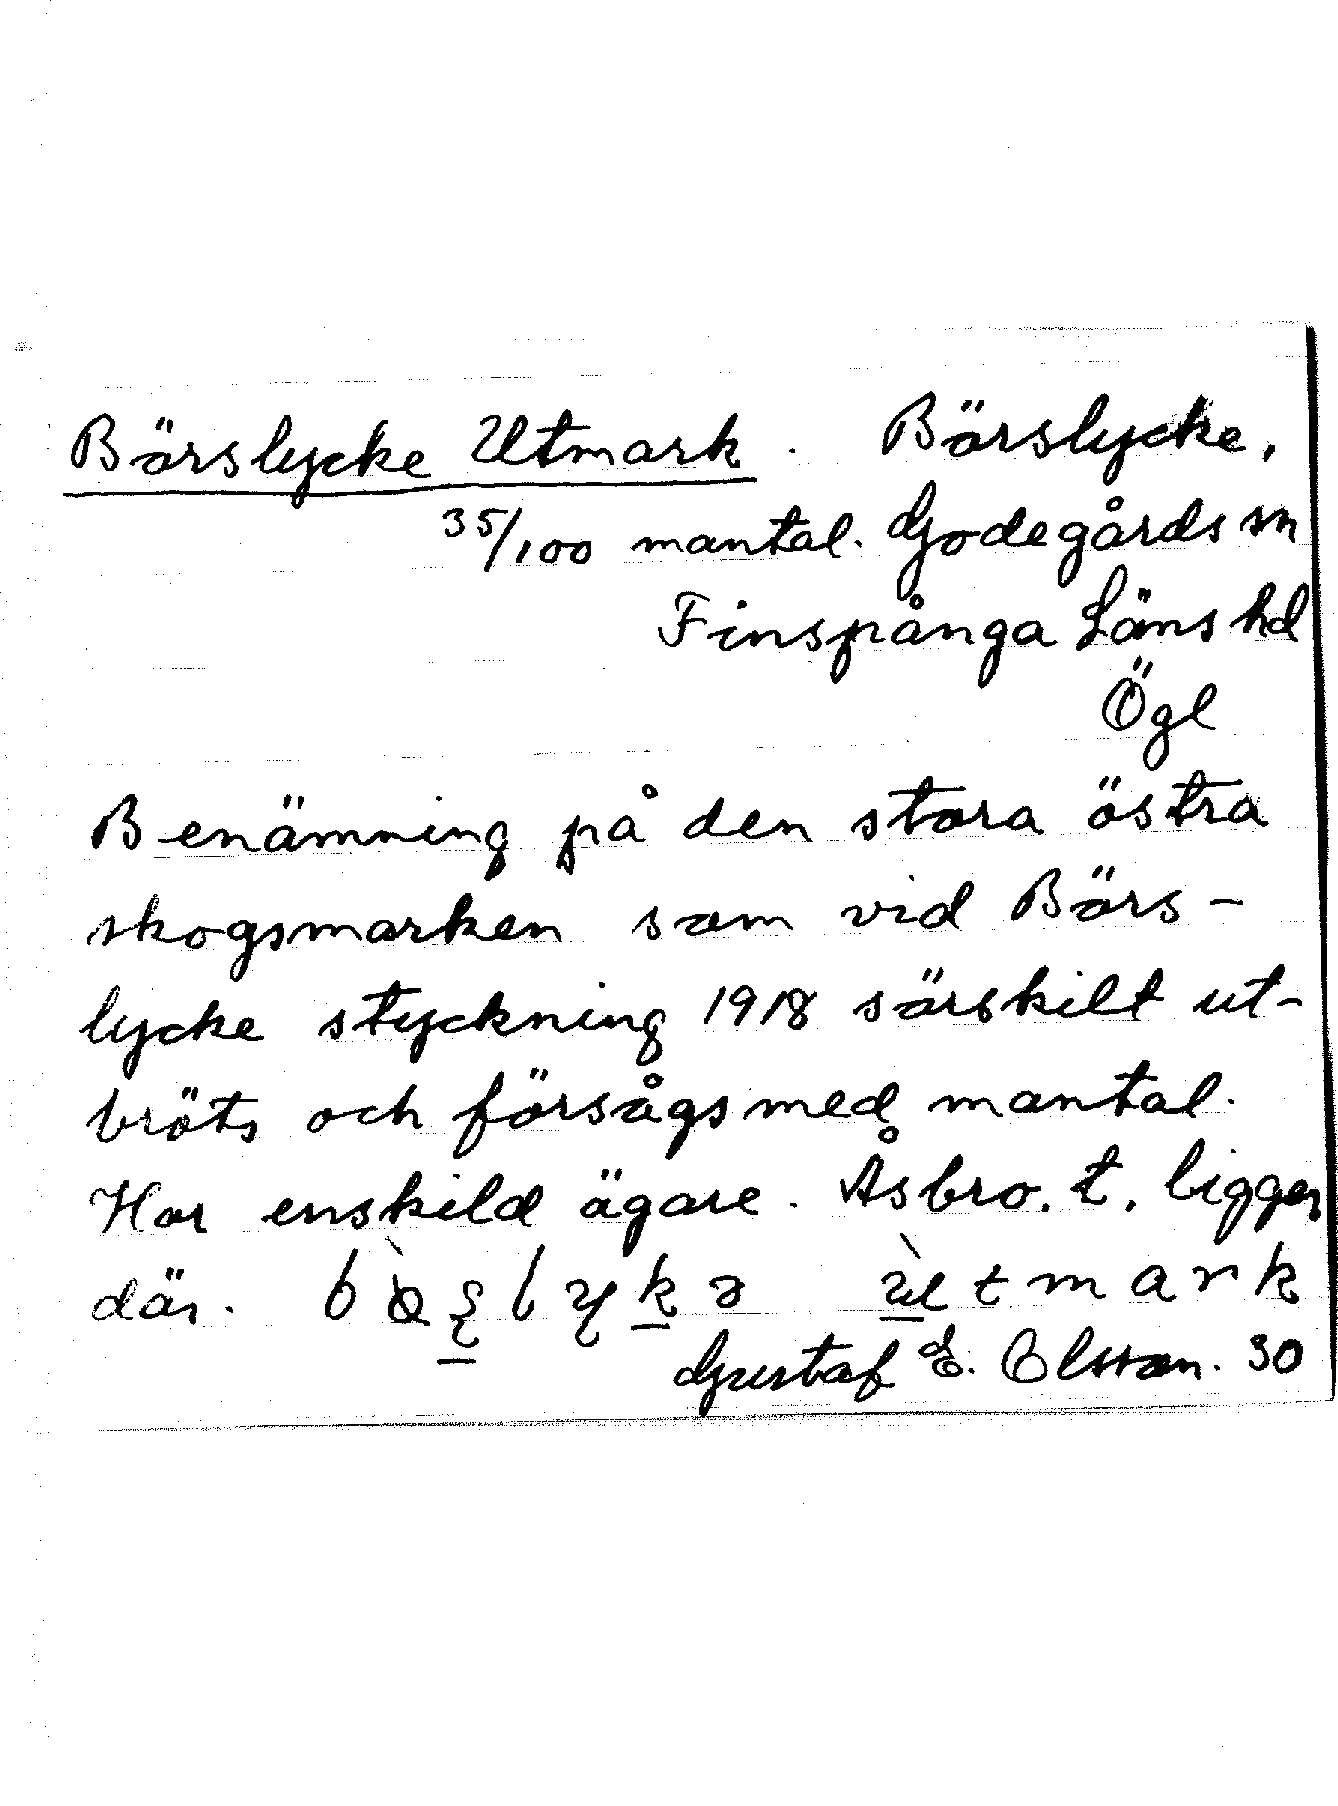 Börslycke Utmark. Börslycke,
35/100 mantal. Godegårds sn
Finspånga Läns hd
Ögl
Benämning på den stora östra
skogsmarken som vid Börs-
lycke styckning 1918 särskilt ut-
bröts och försågs med mantal.
Har enskild ägare. Åsbro. t. ligger
där.
Gustaf E. Olsson. 30